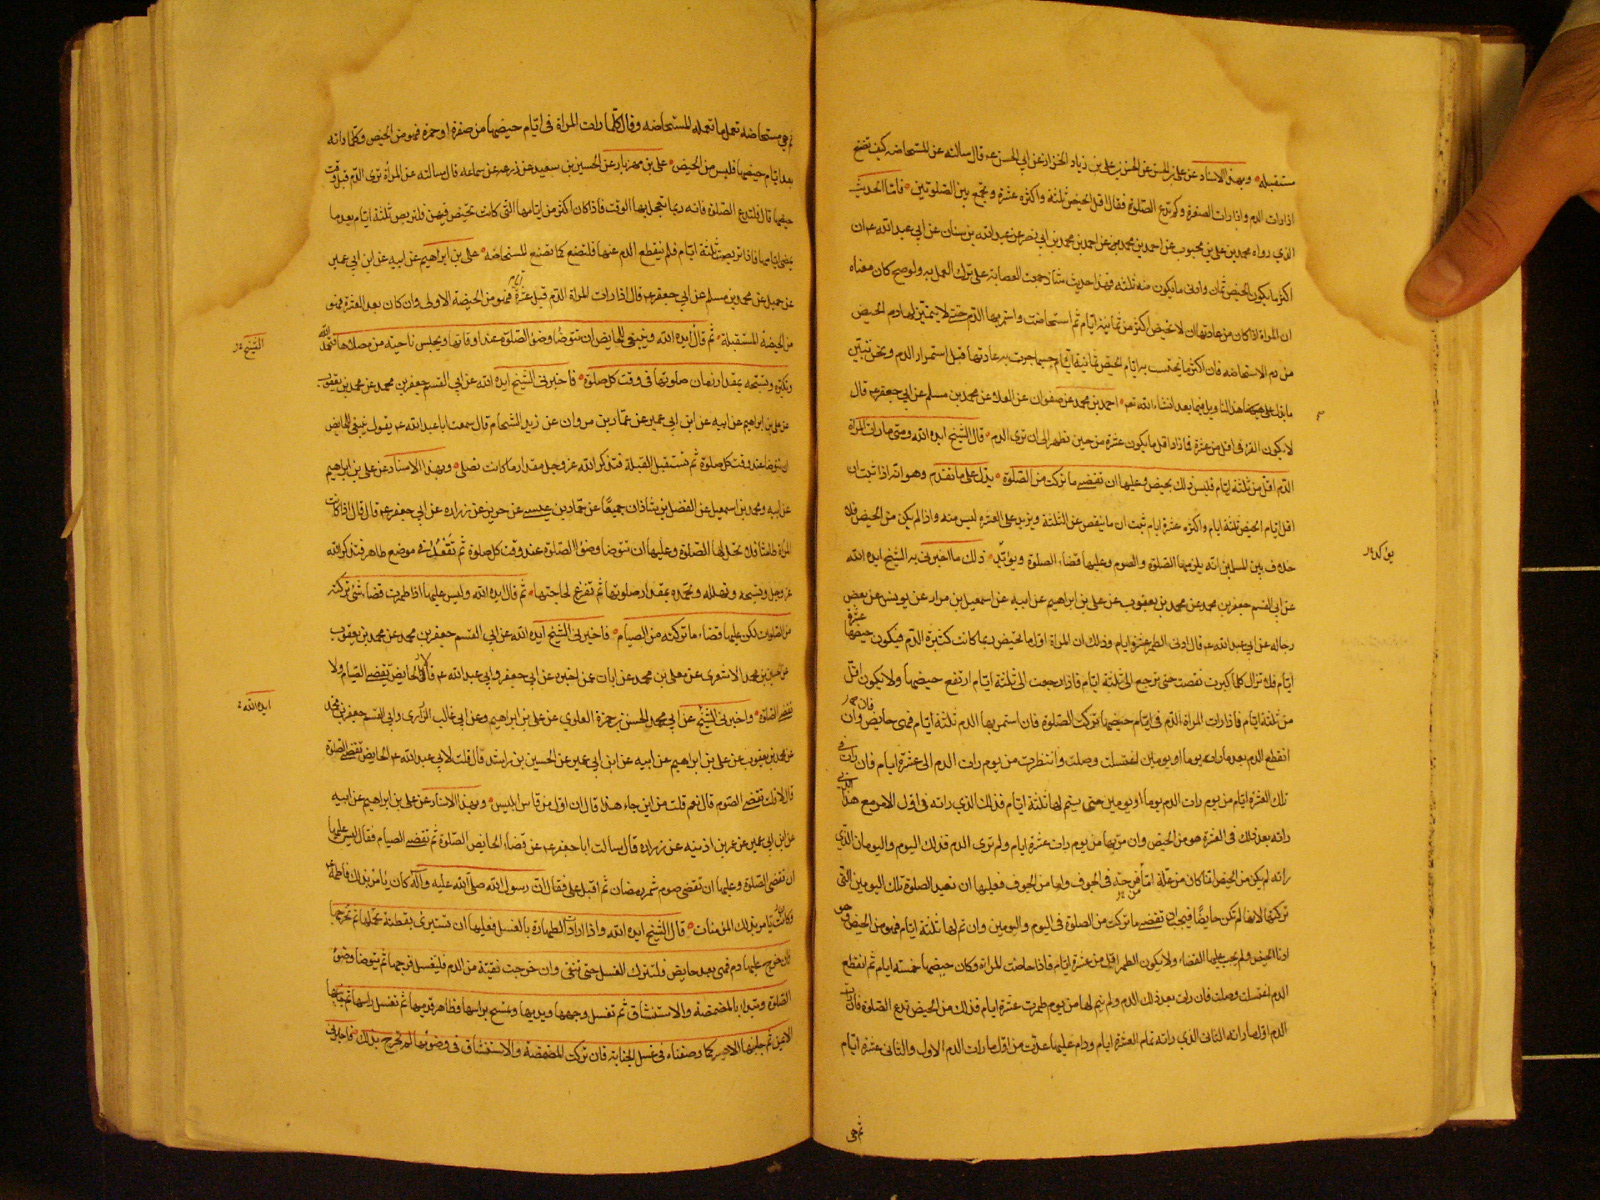 مستقبله وبهذا الاسناد عن علي بن الحسن عن الحسن بن علي بن زياد الخزاز عن ابي الحسن ع قال سالته عن المستحاضه كيف تصنع
اذا رات الدم واذا رات الصفرة وكم تدع الصلوة فقال اقل الحيض ثلثة واكثره عشرة وتجمع بين الصلوتين فاما الحديث
الذي رواه محمد بن علي بن محبوب عن احمد بن محمد عن احمد بن محمد بن ابي نصر عن عبد الله بن سنان عن ابي عبد الله ع ان
اكثر ما يكون الحيض ثمان وادنى ما يكون منه ثلثه فهذا حديث شاذ اجمعت العصابة على ترك العمل به ولو صح كان معناه
ان المراة اذا كان من عادتها ان لا تحيض اكثر من ثمانية ايام ثم استحاضت واستمر بها الدم حتى لا يتميز لها دم الحيض
من دم الاستحاضه فان اكثر ما تحتسب به ايام الحيض ثمانية ايام حسبما جرت به عادتها قبل استمرار الدم ونحن نبين
هذا التاويل فيما بعد انشاء الله تع احمد بن محمد عن صفوان عن العلا عن محمد بن مسلم عن ابي جعفر ع قال
لا يكون القرء في اقل من عشرة فما زاد اقل ما يكون عشرة من حين تطهر الى ان ترى الدم قال الشيخ ايده الله ومتى رات المراة
الدم اقل من ثلثة ايام فليس ذلك بحيض وعليها ان تقضي ما تركت من الصلوة يدل على ما تقدم وهو انه اذا ثبت ان
اقل ايام الحيض ثلثة ايام واكثره عشرة ايام ثبت ان ما ينقص عن الثلثة ويزيد على العشرة ليس منه واذا لم يكن من الحيض فلا
خلاف بين المسلمين انه يلزمها الصلوة والصوم وعليها قضاء الصلوة ويؤكد ذلك ما اخبرني به الشيخ ايده الله
عن ابي القسم جعفر بن محمد عن محمد بن يعقوب عن علي بن ابراهيم عن ابيه عن اسمعيل بن مرار عن يونس عن بعض
رجاله عن ابي عبد الله ع قال ادنى الطهر عشرة ايام وذلك ان المراة اول ما تحيض ربما كانت كثيرة الدم فيكون حيضها عشرة
ايام فلا تزال كلما كبرت نقصت حتى ترجع الى ثلثة ايام فاذا رجعت الى ثلثة ايام ارتفع حيضها ولا يكون اقل
من ثلثة ايام فاذا رات المراة الدم في ايام حيضها تركت الصلوة فان استمر بها الدم ثلثة ايام فهي حايض وان
انقطع الدم بعد ما راته يوما او يومين اغتسلت وصلت وانتظرت من يوم رات الدم الى عشرة ايام فان رات في
تلك العشرة ايام من يوم رات الدم يوما او يومين حتى يتم لها ثلثة ايام فذلك الذي راته في اول الامر مع هذا الذي
راته بعد ذلك في العشرة هو من الحيض وان مر بها من يوم رات عشرة ايام ولم ترى الدم فذلك اليوم واليومان الذي
راته لم يكن من الحيض انما كان من علة اما قرحة في الجوف واما من الجوف فعليها ان تعيد الصلوة تلك اليومين التي
تركتها لانها لم تكن حايضا فيجب ان تقضي ما تركت من الصلوة في اليوم واليومين وان تم لها ثلثة ايام فهو من الحيض وهو
ادنا الحيض ولم يجب عليها القضاء ولا يكون الطهر اقل من عشرة ايام فاذا حاضت المراة وكان حيضها خمسة ايام ثم انقطع
الدم اغتسلت وصلت فان رات بعد ذلك الدم ولم يتم لها من يوم طهرت عشرة ايام فذلك من الحيض تدع الصلوة فان رات
الدم اول ما راته الثاني الذي راته تمام العشرة ايام ودام عليها عدت من اول ما رات الدم الاول والثاني عشرة ايام
ثم هي
ثم هي مستحاضه تعمل ما تعمله المستحاضه وقال كلما رات المراة في ايام حيضها من صفرة او حمرة فهو من الحيض وكلما راته
بعد ايام حيضها فليس من الحيض علي بن مهزيار عن الحسين بن سعيد عن زرعه عن سماعه قال سالته عن المراة ترى الدم قبل وقت
حيضها قال فلتدع الصلوة فانه ربما تعجل بها الوقت فاذا كان اكثر من ايامها التي كانت تحيض فيهن فلتربص ثلثة ايام بعد ما
يمضي ايامها فاذا تربصت ثلثة ايام فلم ينقطع الدم عنها فلتصنع كما تصنع المستحاضه علي بن ابراهيم عن ابيه عن ابن ابي عمير
عن جميل عن محمد بن مسلم عن ابي جعفر ع قال اذا رات المراة الدم قبل عشرة ايام فهو من الحيضة الاولى وان كان بعد العشرة فهو
من الحيضة المستقبلة ثم قال ايده الله وينبغي للحايض ان تتوضا وضوء الصلوة عند اوقاتها ويجلس ناحيته من مصلاها فتحمد الله
وتكبره وتسبحه بمقدار زمان صلوتها في وقت كل صلوة فاخبرني الشيخ ايده الله عن ابي القسم جعفر بن محمد عن محمد بن يعقوب
عن علي بن ابراهيم عن ابيه عن ابن ابي عمير عن عمار بن مروان عن زيد الشحام قال سمعت ابا عبد الله ع يقول ينبغي للحايض
ان تتوضا عند وقت كل صلوة ثم تستقبل القبلة فتذكر الله عز وجل مقدار ما كانت تصلي وبهذا الاسناد عن علي بن ابراهيم
عن ابيه ومحمد بن اسمعيل عن الفضل بن شاذان جميعا عن حماد بن عيسى عن حريز عن زراره عن ابي جعفر ع قال قال اذا كانت
المراة طامثا فلا تحل لها الصلوة وعليها ان تتوضا وضوء الصلوة عند وقت كل صلوة ثم تقعد في موضع طاهر فتذكر الله
عز وجل وتسبحه وتهلله وتحمده بمقدار صلوتها ثم تفرغ لحاجتها ثم قال ايده الله وليس عليها اذا طهرت قضاء شئ تركته
من الصلوات لكن عليها قضاء ما تركته من الصيام فاخبرني الشيخ ايده الله عن ابي القسم جعفر بن محمد عن محمد بن يعقوب
عن الحسين بن محمد الاشعري عن معلى بن محمد عن ابان عن اخبره عن ابي جعفر وابي عبد الله ع قالا الحايض تقضي الصيام ولا
تقضي الصلوة واخبرني الشيخ عن ابي محمد الحسن بن حمزة العلوي عن علي بن ابراهيم وعن ابي غالب الزراري وابي القسم جعفر بن محمد
عن محمد بن يعقوب عن علي بن ابراهيم عن ابيه عن ابن ابي عمير عن الحسين بن راشد قال قلت لابي عبد الله ع الحايض تقضي الصلوة
قال لا قلت تقضي الصوم قال نعم قلت من اين جاء هذا قال ان اول من قاس ابليس وبهذا الاسناد عن علي بن ابراهيم عن ابيه
عن ابن ابي عمير عن عمر بن اذينه عن زراره قال سالت ابا جعفر ع عن قضاء الحايض الصلوة ثم تقضي الصيام فقال ليس عليها
ان تقضي الصلوة وعليها ان تقضي صوم شهر رمضان ثم اقبل علي فقال ان رسول الله صلى الله عليه واله كان يامر بذلك فاطمة
وكانت تامر بذلك المؤمنات قال الشيخ ايده الله واذا ارادت الطهارة بالغسل فعليها ان تستبرئ بقطنة تحملها ثم تخرجها
فان خرج عليها دم فهي بعد حايض فلتترك الغسل حتى تنقى وان خرجت نقية من الدم فليغسل فرجها ثم يتوضا وضوء
الصلوة وتبدا بالمضمضة والاستنشاق ثم تغسل وجهها ويديها وتمسح براسها وظاهر قدميها ثم تغسل راسها ثم جانبها
الايمن ثم جانبها الايسر كما وصفناه في غسل الجنابة فان تركت المضمضة والاستنشاق في وضوئها لم تحرج بذلك فاخبرني
الشيخ
ايده الله